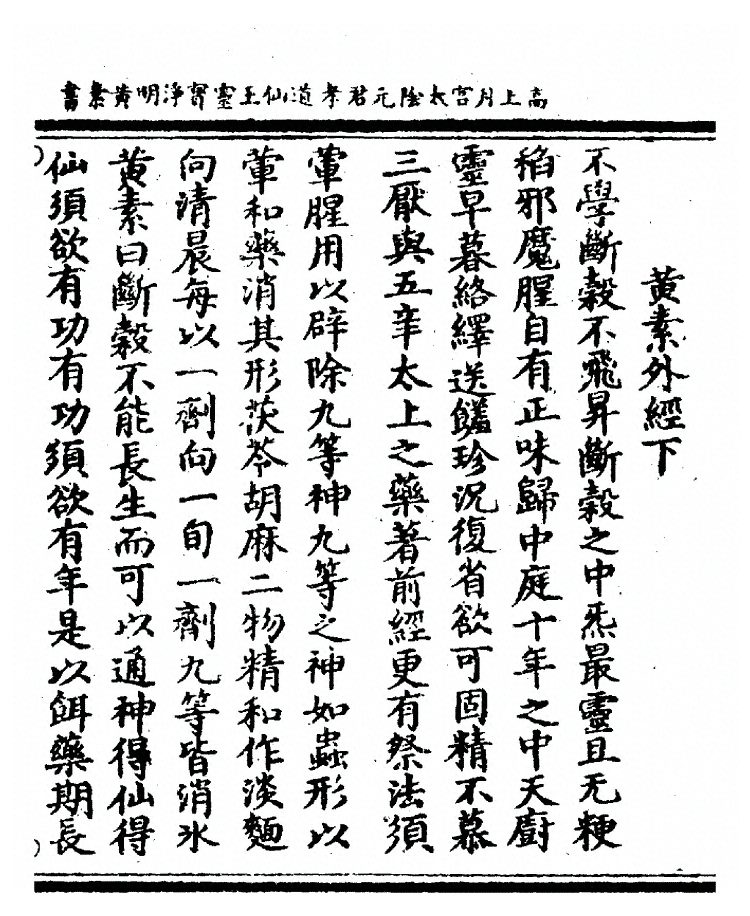 高上月宫太陰元君孝道仙王靈寳淨明黄素書
黄素外經下
不學斷穀不飛昇斷穀之中炁最靈且无粳
稻邪魔腥自有正味歸中庭十年之中天廚
靈早暮絡繹送饈珍況復省欲可固精不慕
三厭與五辛太上之藥著前經更有祭法須
葷腥用以辟除九等神九等之神如蟲形以
葷和藥消其形茯苓胡麻二物精和作淡麵
向清晨每以一劑向一旬一劑九等皆消氷
黄素曰斷穀不能長生而可以通神得仙得
仙須欲有功有功須欲有年是以餌藥期長